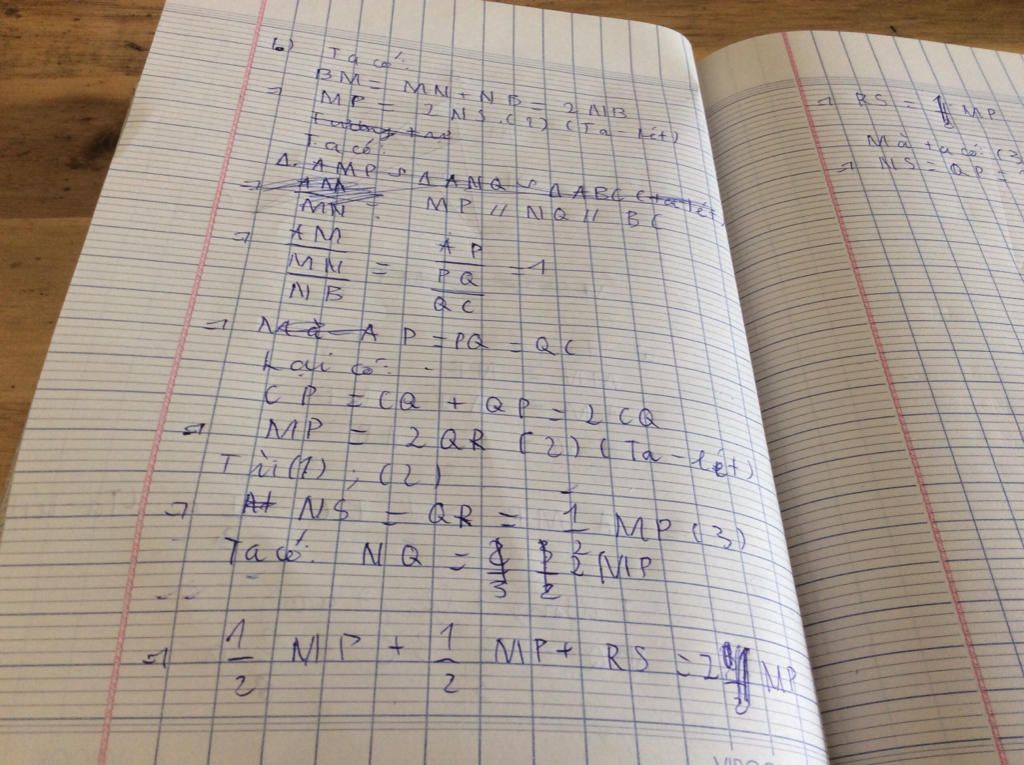 b) Ta có:
BM = MN + NB = 2 NB
⇒ MP = 2 NS (1) (Ta-lét)
Tương tự
Ta có:
Δ AMP ∽ Δ ANQ ∽ Δ ABC (ta lét)
⇒ AM / MN = MP // NQ // BC
⇒ AM / MN / NB = AP / PQ / QC = 1
⇒ Mà AP = PQ = QC
Lại có:
CP = CQ + QP = 2 CQ
⇒ MP = 2 QR (2) (Ta-lét)
Từ (1), (2)
⇒ NS = QR = 1/2 MP (3)
Ta có: NQ = 2 MP
⇒ 1/2 MP + 1/2 MP + RS = 2 MP
⇒ RS = 1 MP
Mà ta có: (3)
⇒ NS = QP =